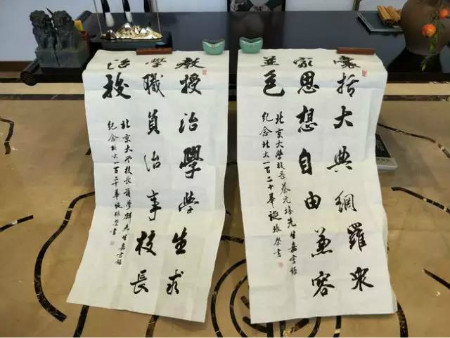 囊括大典網羅眾
家思想自由兼容
並包
北京大學校長蔡元培先生嘉言錄
紀念北大一百二十年誕 振書
教授治學學生求
學職員治事校長
治校
北京大學校長蔣夢麟先生嘉言錄
紀念北大一百二十年誕 振書